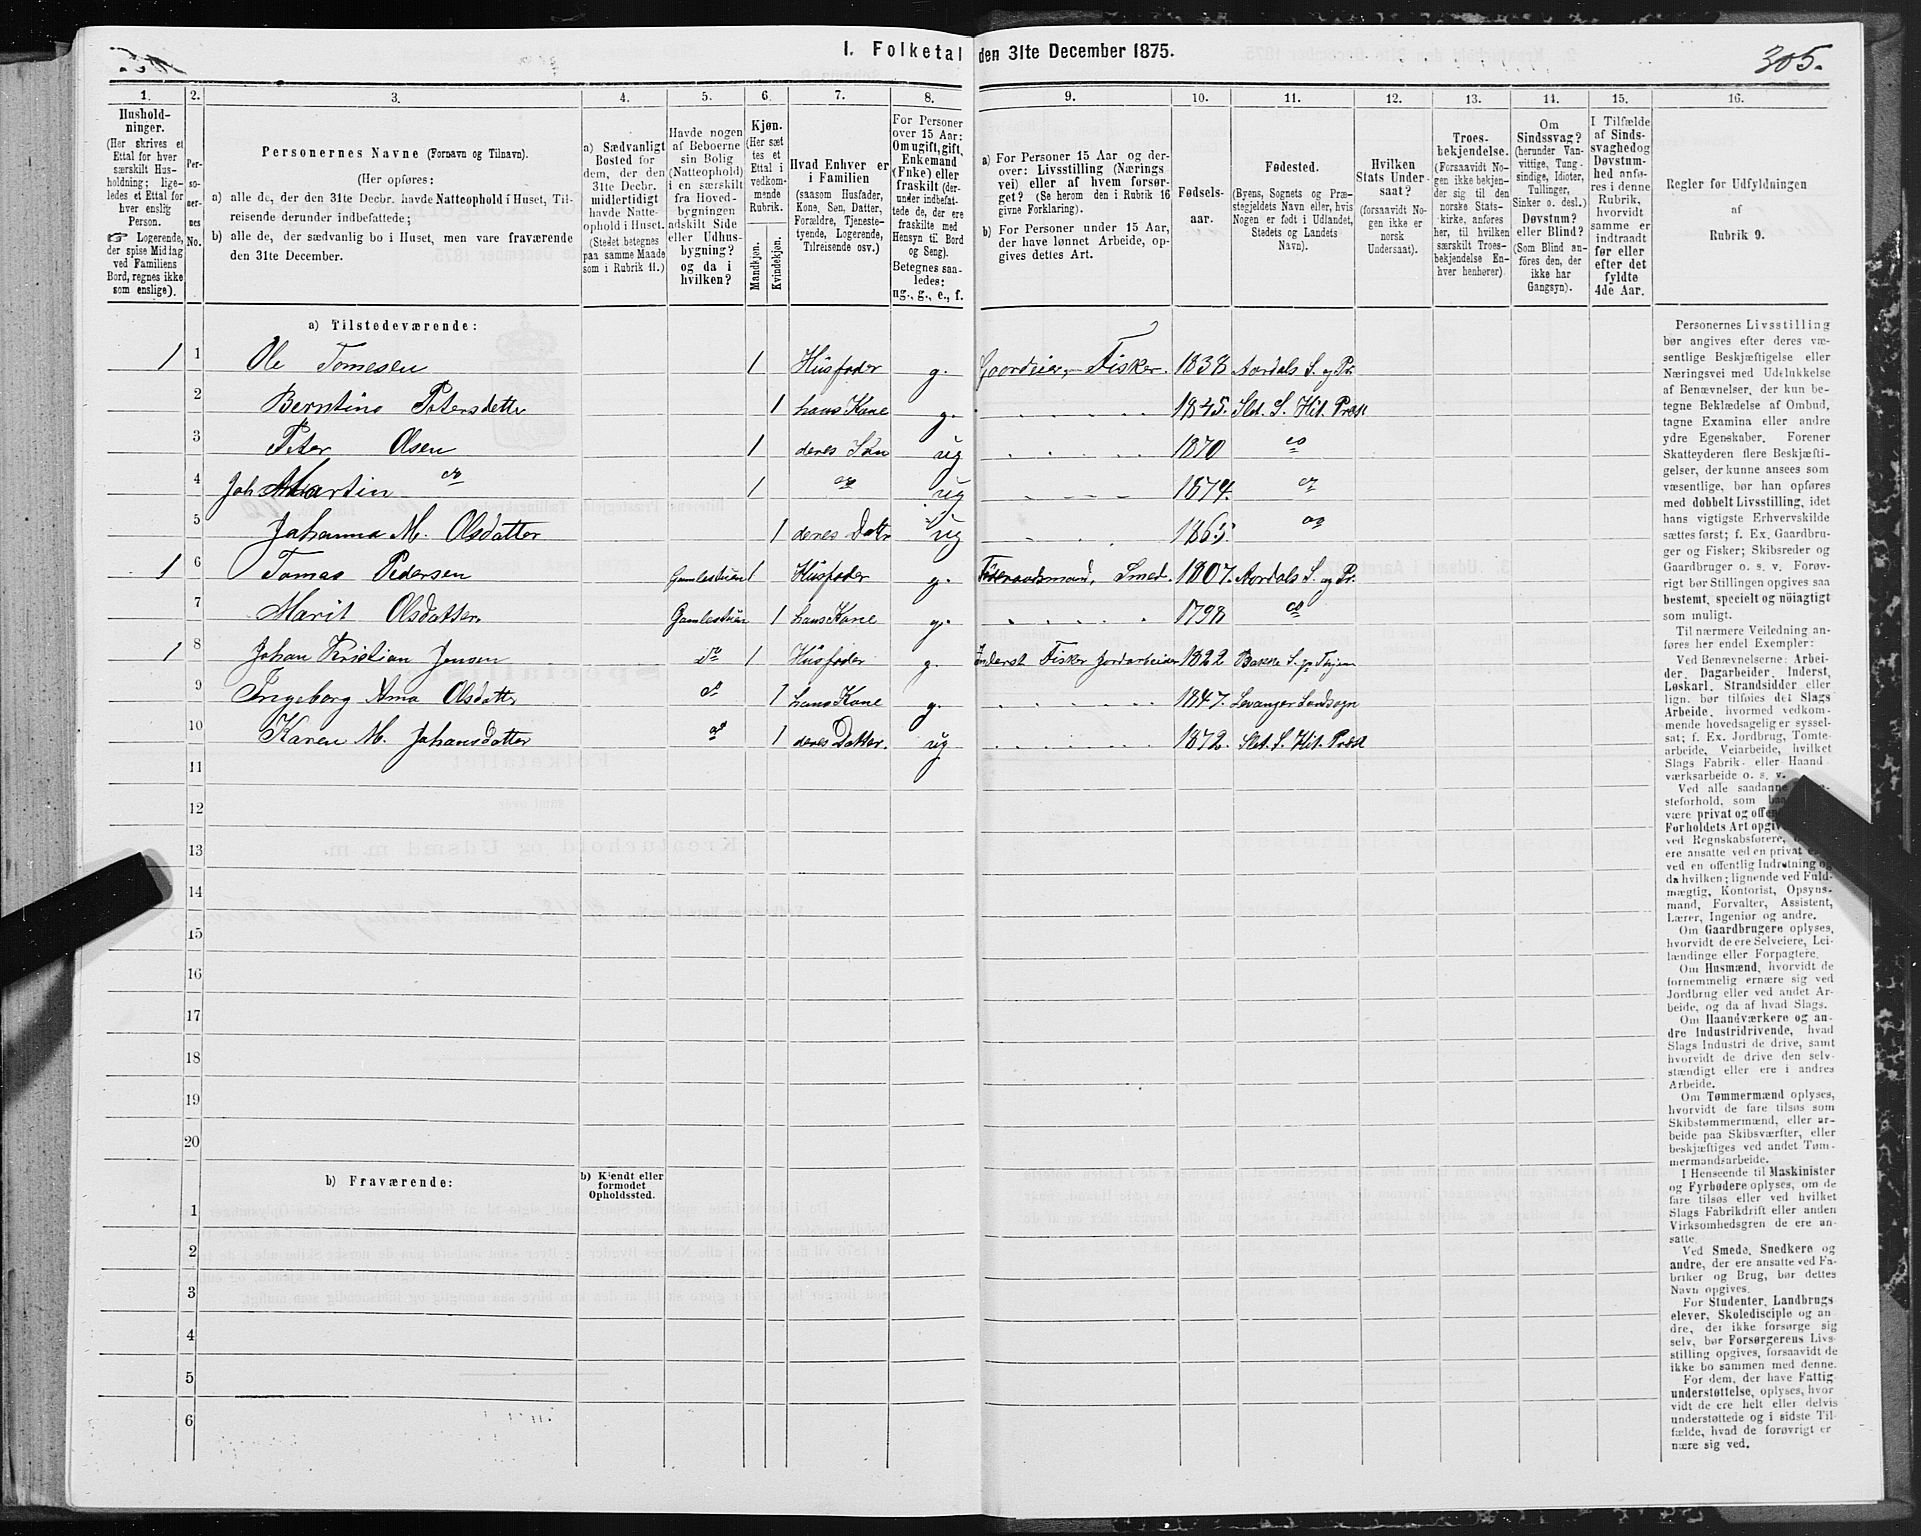 I. Folketal den 31te December 1875.
305.
1.
Hushold-
ninger.
(Her skrives et
Ettal for hver
særskilt Hus-
holdning; lige-
ledes et Ettal for
hver enslig
Person.
Logerende,
der spise Middag
ved Familiens
Bord, regnes ikke
som enslige).
2.
Per-
so-
ner-
nes
No.
3.
Personernes Navne (Fornavn og Tilnavn).
(Her opføres:
a) alle de, der den 31te Decbr. havde Natteophold i Huset, Til-
reisende derunder indbefattede;
b) alle de, der sædvanlig bo i Huset, men vare fraværende
den 31te December.
4.
a) Sædvanligt
Bosted for
dem, der den
31te Decbr.
midlertidigt
havde Natte-
ophold i Huset.
(Stedet betegnes
paa samme Maade
som i Rubrik 11.)
5.
Havde nogen
af Beboerne
sin Bolig
(Natteophold)
i en særskilt
fra Hoved-
bygningen
adskilt Side
eller Udhus-
bygning?
og da i
hvilken?
6.
Kjøn.
(Her sæt
tes et
Ettal i
vedkom-
mende
Rubrik.
Mandkjøn.
Kvindekjøn.
7.
Hvad Enhver er
i Familien
(saasom Husfader,
Kone, Søn, Datter,
Forældre, Tjeneste-
tyende, Logerende,
Tilreisende osv.)
8.
For Personer
over 15 Aar:
Om ugift, gift,
Enkemand
(Enke) eller
fraskilt (der-
under indbefat-
tede de, der ere
fraskilte med
Hensyn til Bord
og Seng).
Betegnes saa-
ledes:
ug., g., e., f.
9.
a) For Personer 15 Aar og der-
over: Livsstilling (Nærings
vei) eller af hvem forsør-
get? (Se herom den i Rubrik 16
givne Forklaring).
b) For Personer under 15 Aar,
der have lønnet Arbeide, op-
gives dettes Art.
10.
Fødsels-
aar.
11.
Fødested.
(Byens, Sognets og Præ-
stegjeldets Navn eller, hvis
Nogen er født i Udlandet,
Stedets og Landets
Navn).
12.
Hvilken
Stats Under-
saat?
(forsaavidt No-
gen ikke er
norsk
Undersaat).
13.
Troes-
bekjendelse.
(Forsaavidt No-
gen ikke bekjen-
der sig til den
norske Stats-
kirke, anføres
her, til hvilken
særskilt Troes-
bekjendelse En-
hver henhører).
14.
Om
Sindssvag?
(herunder Van-
vittige, Tung-
sindige, Idioter,
Tullinger,
Sinker o. desl.)
Døvstum?
eller Blind?
(Som Blind an-
føres den, der
ikke har
Gangsyn).
15.
I Tilfælde
af Sinds-
svaghed og
Døvstum-
hed anfø-
res i denne
Rubrik,
hvorvidt
samme er
indtraadt
før eller
efter det
fyldte
4de Aar.
16.
Regler for Udfyldningen
af
Rubrik 9.
a) Tilstedeværende:
1 1 Ole Tomesen 1 Husfader g. Gaardeier, Fisker. 1838 Aardals S. og Pr.
2 Berntine Petersdatter 1 hans Kone g. 1845. Slet. S. Hit. Præst
3 Peter Olsen 1 deres Søn ug 1870 do
4 Joh Martin do 1 do ug 1874. do
5 Johanna M. Olsdatter 1 deres Datr ug 1865. do
1 6 Tomas Pedersen Gamlestuen 1 Husfader g. Føderaadsmand, Smed. 1807. Aardals S. og Pr.
7 Marit Olsdatter. Gamlestuen 1 hans Kone g. 1798 do
1 8 Johan Kristian Jensen do 1 Husfader g. Inderst Fisker Jordarbeider 1822
9 Ingeborg Anna Olsdatter do 1 hans Kone g. 1847. Levanger Landsogn
10 Karen M. Johansdatter do 1 deres Datter. ug 1872. Slet. S. Hit. Præst
11
12
13
14
15
16
17
18
19
20
b) Fraværende:
b) Kjendt eller
formodet
Opholdssted.
1
2
3
4
5
6
Personernes Livsstilling
bør angives efter deres væ-
sentlige Beskjæftigelse eller
Næringsvei med Udelukkelse
af Benævnelser, der kun be-
tegne Beklædelse af Ombud,
tagne Examina eller andre
ydre Egenskaber. Forener
Skatteyderen flere Beskjæfti-
gelser, der kunne ansees som
væsentlige, bør han opføres
med dobbelt Livsstilling, idet
hans vigtigste Erhvervskilde
sættes først; f. Ex. Gaardbru-
ger og Fisker; Skibsreder og
Gaardbruger o. s. v. Forøv-
rigt bør Stillingen opgives saa
bestemt, specielt og nöiagtigt
som muligt.
Til nærmere Veiledning an-
føres her endel Exempler:
Ved Benævnelserne: Arbei-
der, Dagarbeider, Inderst,
Løskarl, Strandsidder eller
lign. bør tilføies det Slags
Arbeide, hvormed vedkom-
mende hovedsagelig er syssel-
sat; f. Ex. Jordbrug, Tomte-
arbeide, Veiarbeide, hvilket
Slags Fabrik- eller Haand
værksarbeide o. s. v.
Ved alle saadanne
steforhold, som
være privat og
Forholdets Art
ved Regnskabsførere,
ere ansatte ved en privat
ved en offentlig Indretning og
da hvilken; lignende ved Fuld-
mægtig, Kontorist, Opsyns-
mand, Forvalter, Assistent,
Lærer, Ingeniør og andre.
Om Gaardbrugere oplyses,
hvorvidt de ere Selveiere, Lei-
lændinge eller Forpagtere.
Om Husmænd, hvorvidt de
fornemmelig ernære sig ved
Jordbrug eller ved andet Ar-
beide, og da af hvad Slags.
Om Haandværkere og an-
dre Industridrivende, hvad
Slags Industri de drive, samt
hvorvidt de drive den selv-
stændigt eller ere i andres
Arbeide.
Om Tømmermænd oplyses,
hvorvidt de fare tilsøs som
Skibstømmermænd, eller ar-
beide paa Skibsværfter, eller
beskjæftiges ved andet Tøm-
mermandsarbeide.
I Henseende til Maskinister
og Fyrbødere oplyses, om de
fare tilsøs eller ved hvilket
Slags Fabrikdrift eller anden
Virksomhedsgren de ere an-
satte.
Ved Smede, Snedkere og
andre, der ere ansatte ved Fa-
briker og Brug, bør dettes
Navn opgives.
For Studenter, Landbrugs
elever, Skoledisciple og an-
dre, der ikke forsørge sig
selv, bør Forsørgerens Livs-
stilling opgives, forsaavidt de
ikke bo sammen med denne.
For dem, der have Fattig
understøttelse, oplyses, hvor
vidt de ere helt eller delvis
understøttede og i sidste Til-
fælde, hvad de forøvrigt er
nære sig ved.